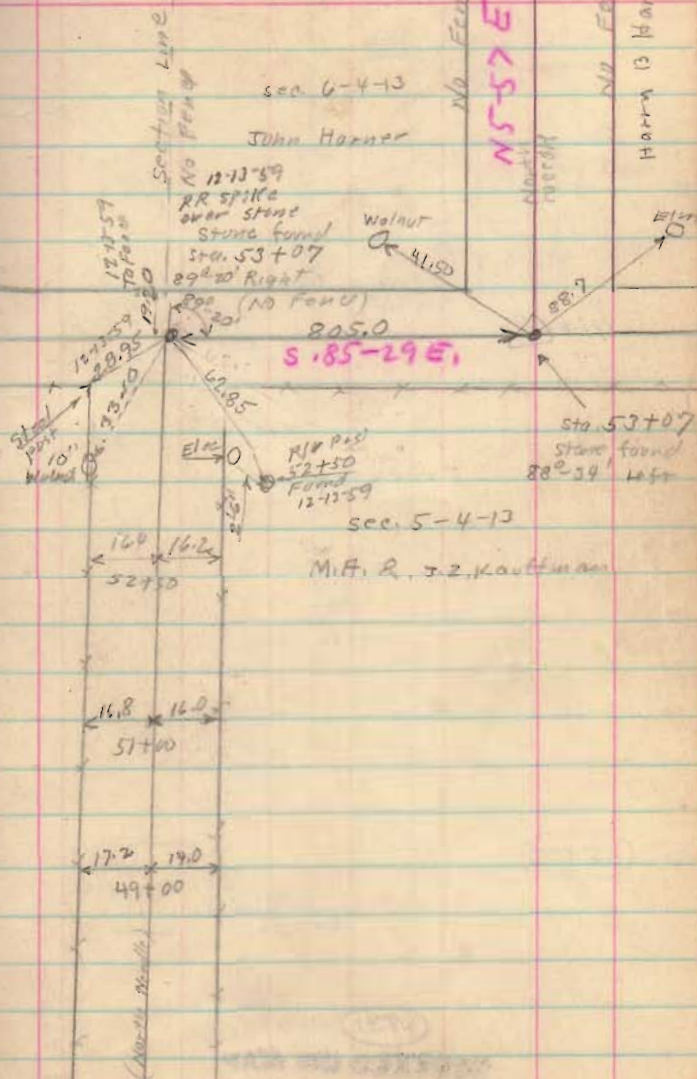 Section Line
No Fence
sec. 6-4-13
John Harner
No Fen
N5-57 E
North
No Fe
12-13-59
RR spike
over stone
Stone found
sta. 53+07
89°20' Right
(No Fence)
Walnut
41.50
Elm
88.7
12-13-59
To Fence
19.20
89°
20'
805.0
S.85-29 E.
12-13-59
28.95
33.10
Steel
post
10"
Walnut
62.85
Elec
R/W Post
52+50
Found
12-12-59
sta. 53+07
Stone found
88°-34' Left
sec. 5-4-13
M.A. & J.Z. Kauffman
16.4 16.2
52+50
16.8 16.0
51+00
17.2 14.0
49+00
(North Needle)